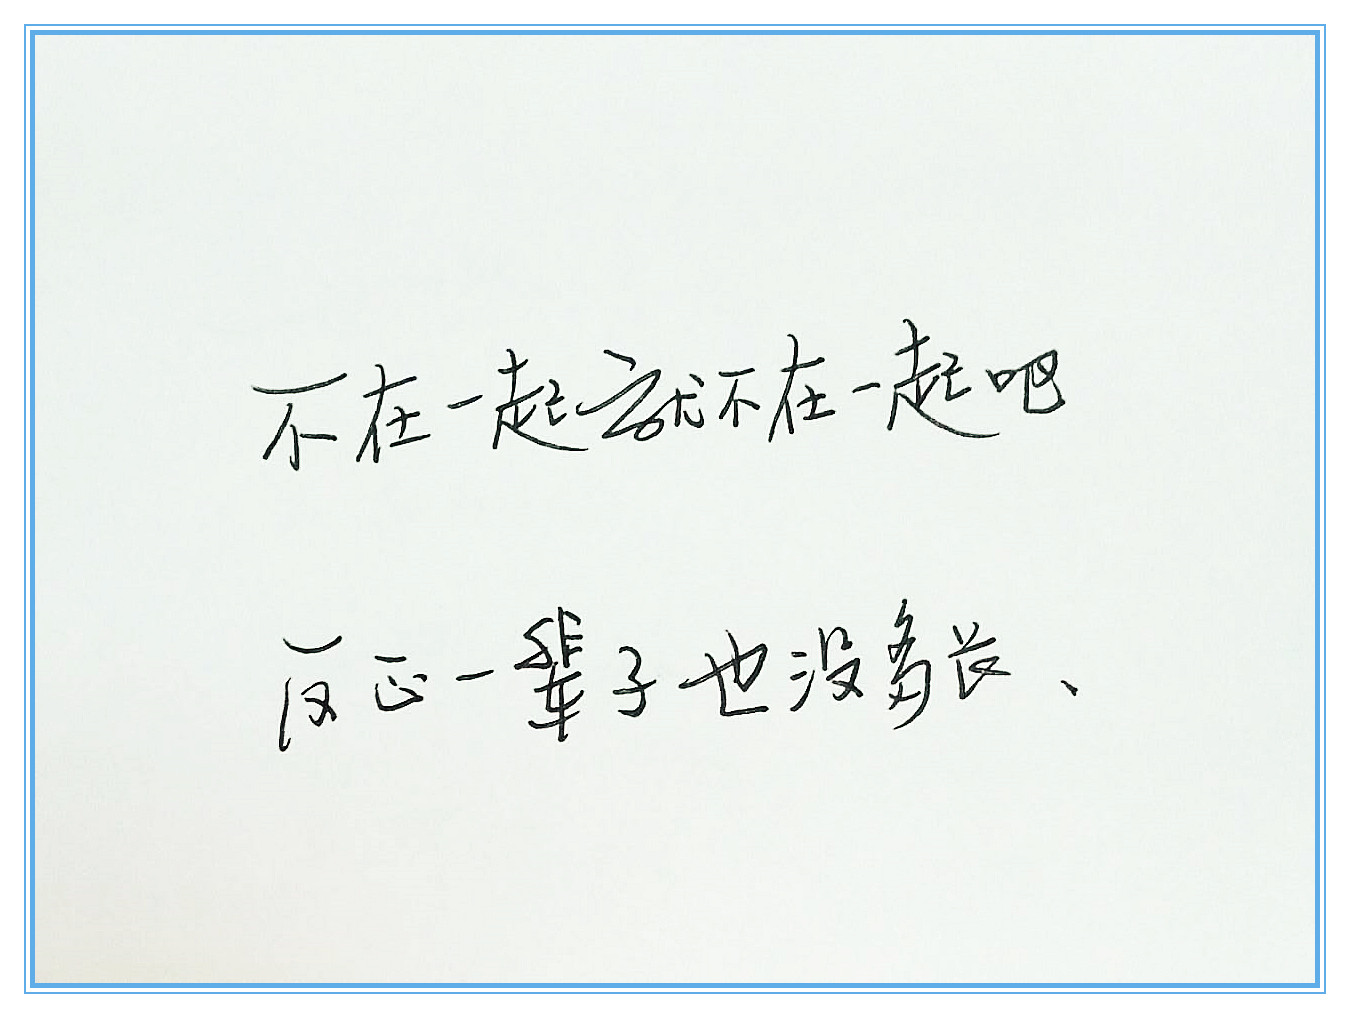 不在一起就不在一起吧
反正一辈子也没多长、